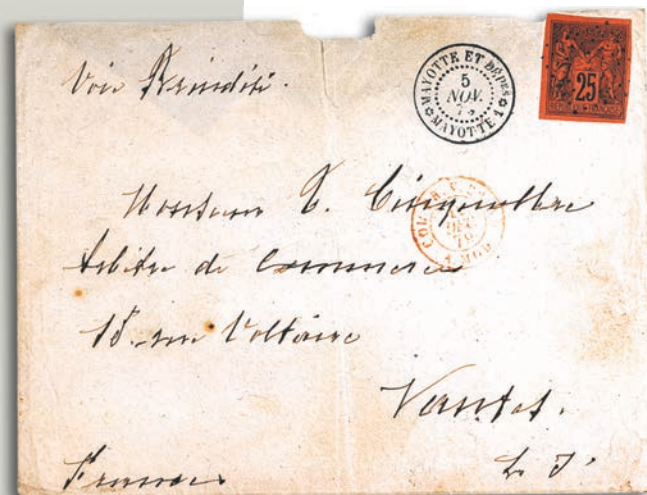 Voie Brindisi.
MAYOTTE ET DÉPCES
5
NOV.
MAYOTTE 1
25
Monsieur
DEC
79
MOD
Arbitre de Commerce
18 rue Voltaire
Nantes.
L. I.
France